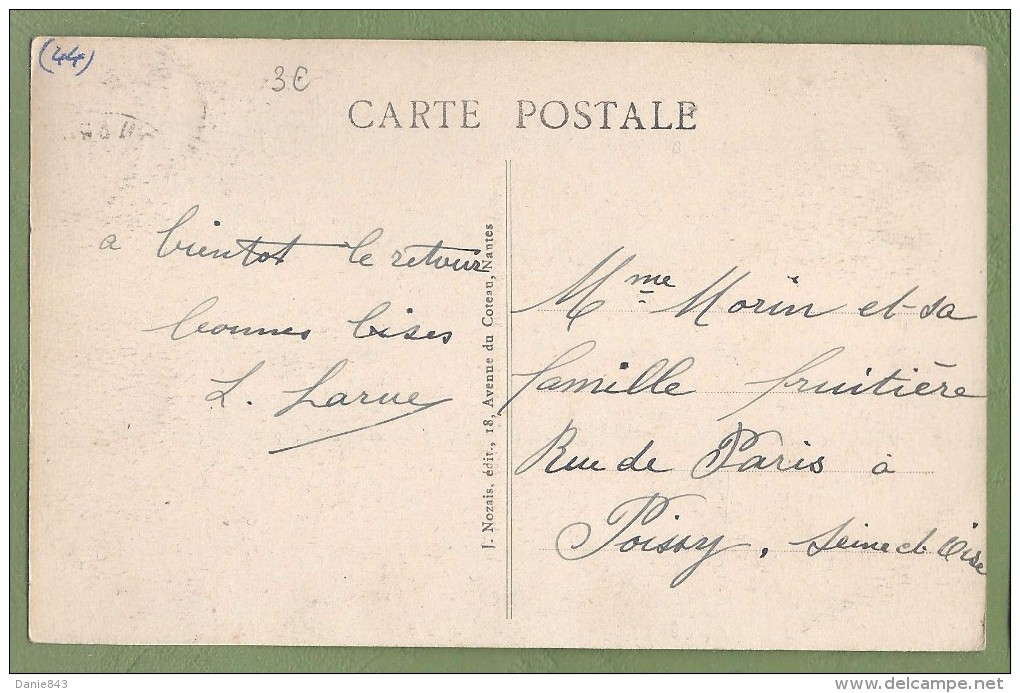 (44)
3€
CARTE POSTALE
a bientot le retour
bonnes bises
L. Larue
J. Nozais, édit., 18, Avenue du Coteau, Nantes
Mme Morin et sa
famille fruitière
Rue de Paris à
Poissy, Seine et Oise
Danie843
www.delcampe.net